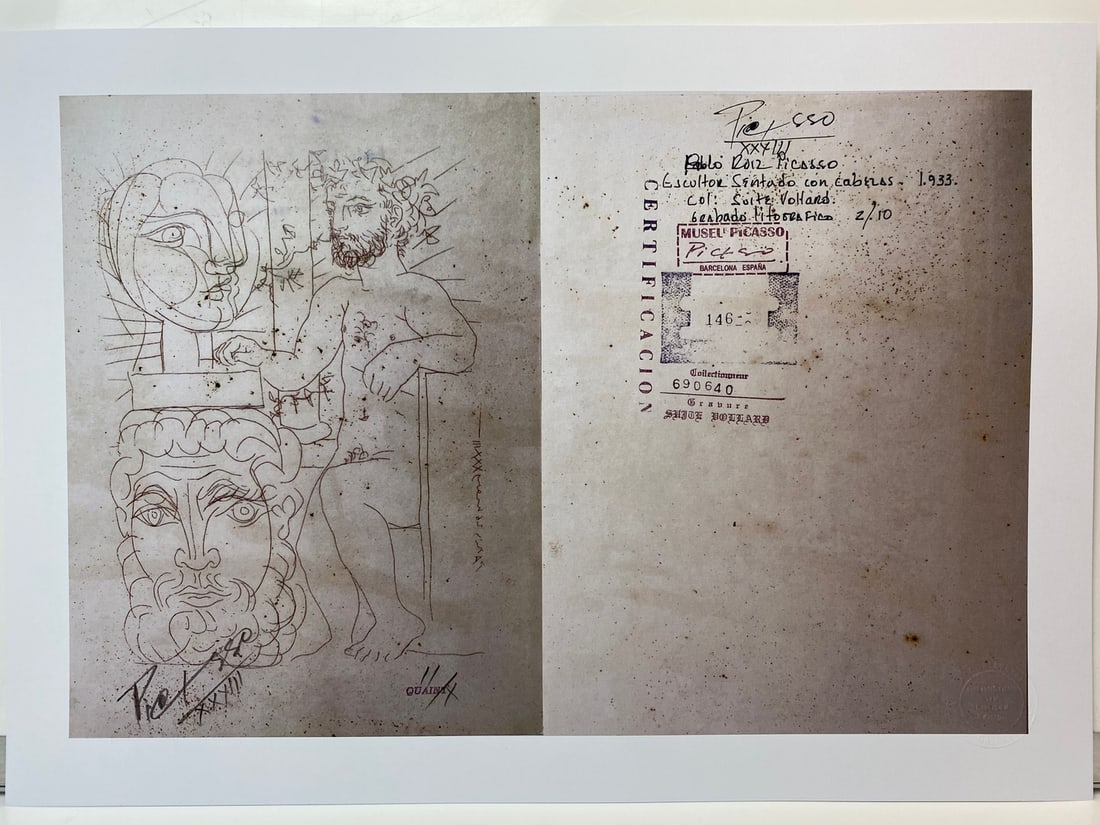 XXXIII
QUAINT
Picasso
XXXIII
Pablo Ruiz Picasso
Escultor Sentado con Cabezas - 1.933.
Col: Suite Vollard.
Grabado Litografico 2/10
CERTIFICACION
MUSEU PICASSO
Picasso
BARCELONA ESPAÑA
146
Collectionneur
690640
Gravure
SUITE VOLLARD